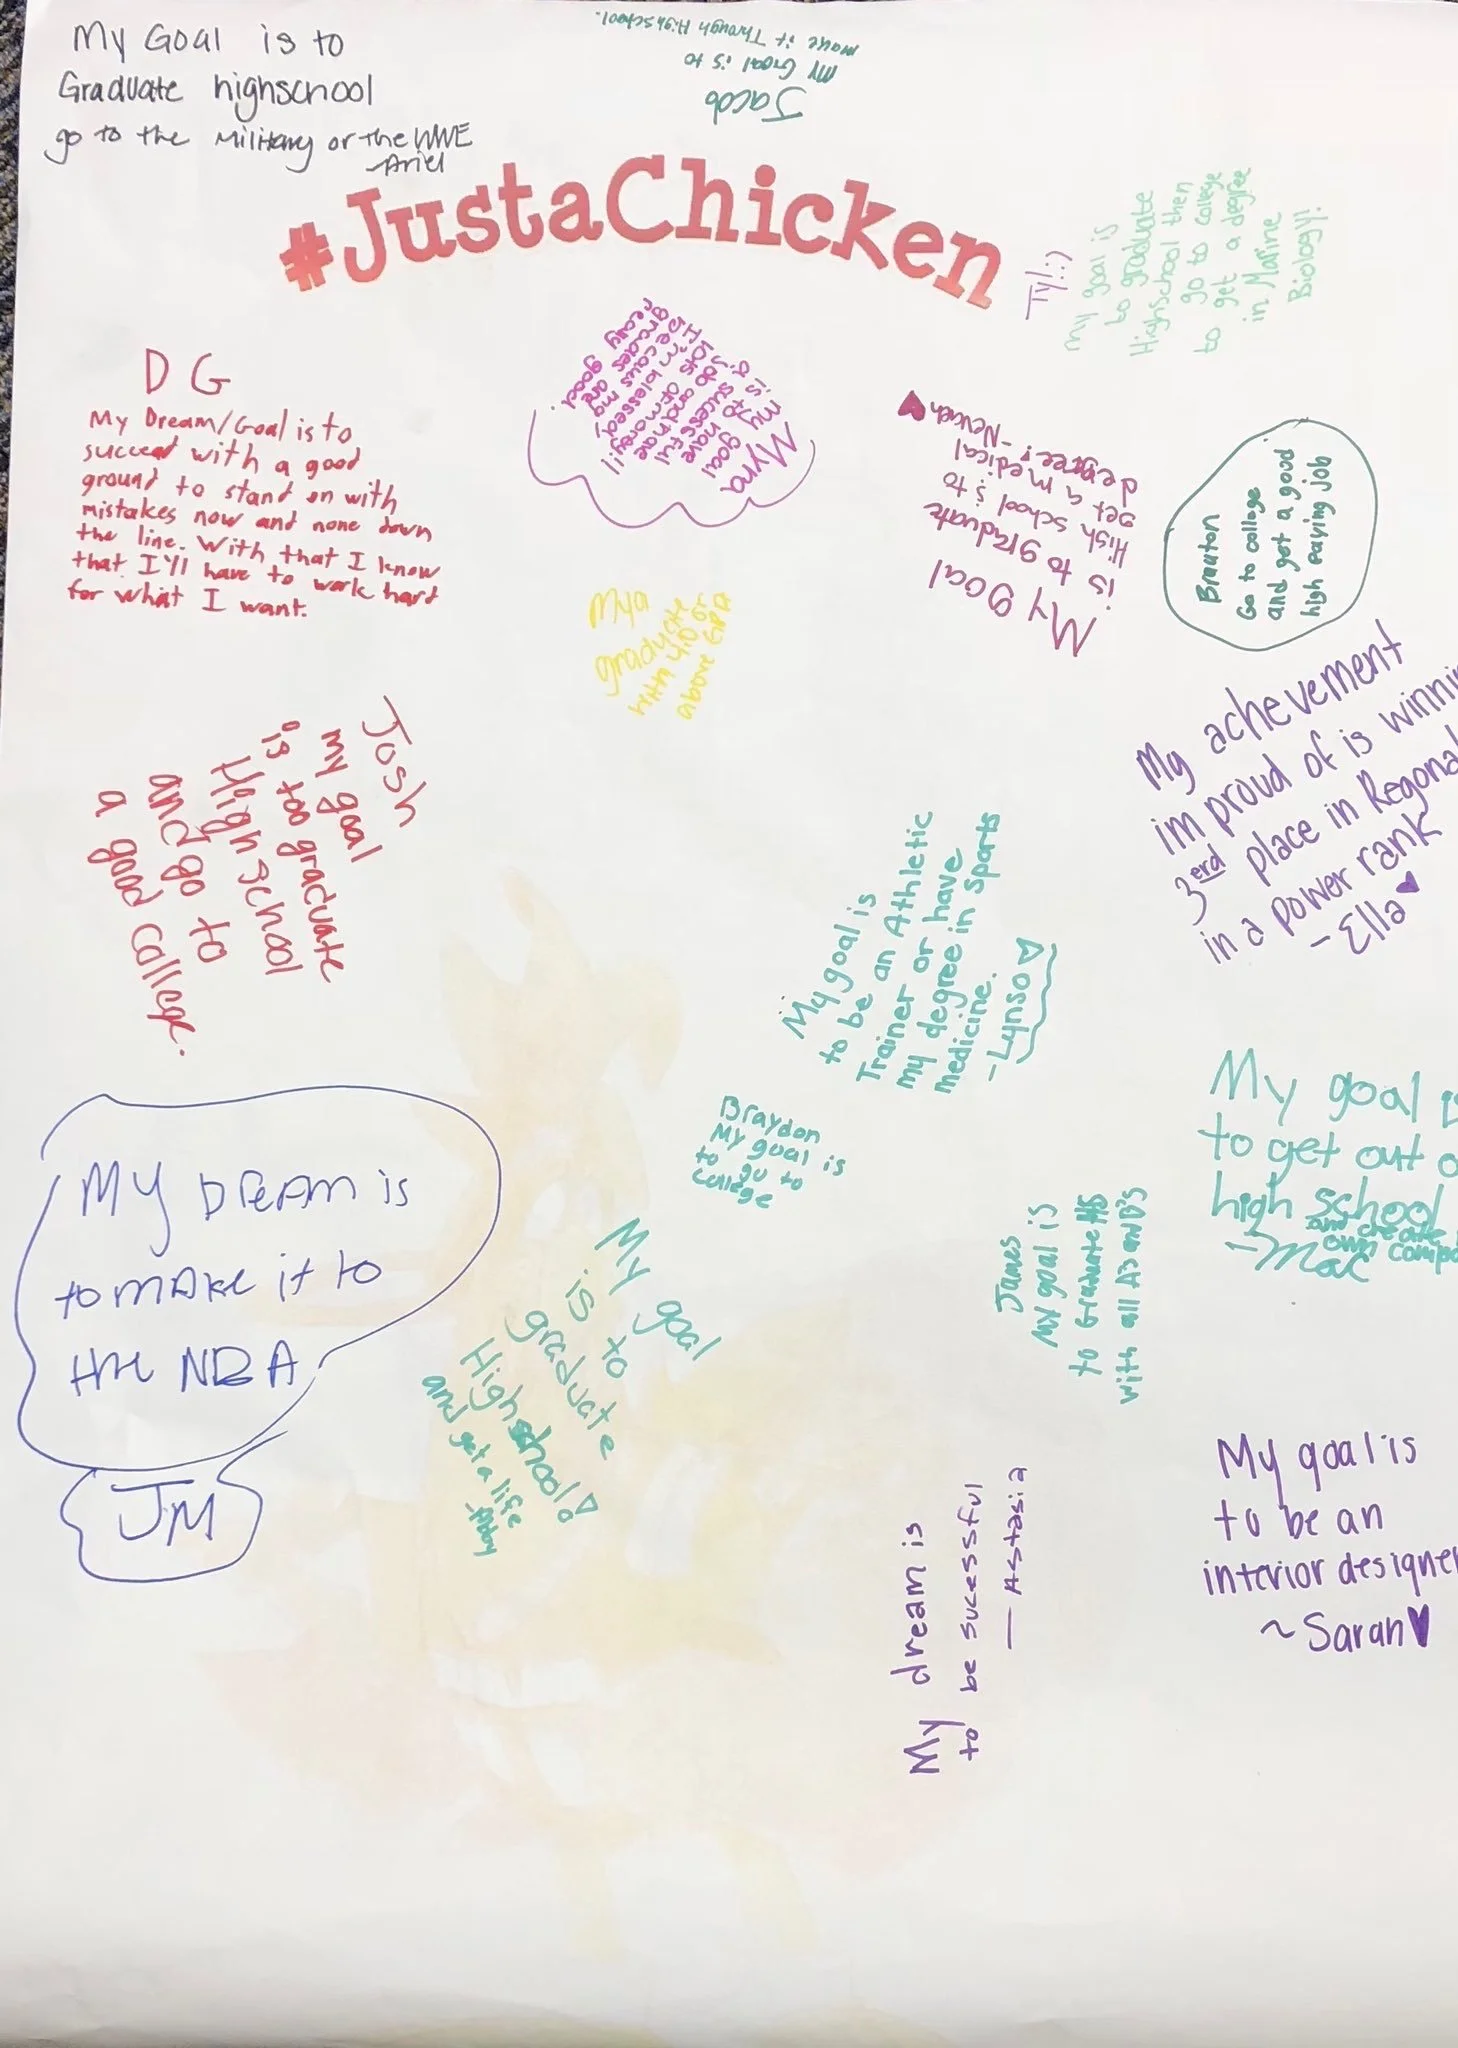 My Goal is to
Graduate highschool
go to the Military or the WWE
-Ariel
Jacob
My Goal is to
make it Through Highschool.
#JustaChicken
Ty!:)
my goal is
to graduate
Highschool then
go to college
to get a degree
in Marine
Biology!
DG
My Dream/Goal is to
succeed with a good
ground to stand on with
mistakes now and none down
the line. With that I know
that I'll have to work hard
for what I want.
Myra
my goal
is to have
a successful
job and have
lots of money!!
I'm blessed,
because my
grades are
really good.
My goal
is to graduate
High school is to
get a medical
degree! -Nevaeh
Brauton
Go to college
and get a good
high paying job
Mya
graduate
with 4.0 or
above GPA
My achevement
im proud of is winnin
3erd place in Regona
in a power rank
- Ella
Josh
my goal
is too graduate
High school
and go to
a good college.
My goal is
to be an Athletic
Trainer or have
my degree in sports
medicine.
-Lynso
Braydon
My goal is
to go to
college
My goal is
to get out o
high school
and create
own compa
-Mac
James
My goal is
to Graduate HS
with all A's and B's
My Dream is
to make it to
the NBA
JM
My goal
is to
graduate
High school!
and get a life
My dream is
to be sucessful
— Astasia
My goal is
to be an
interior designe
~Sarah